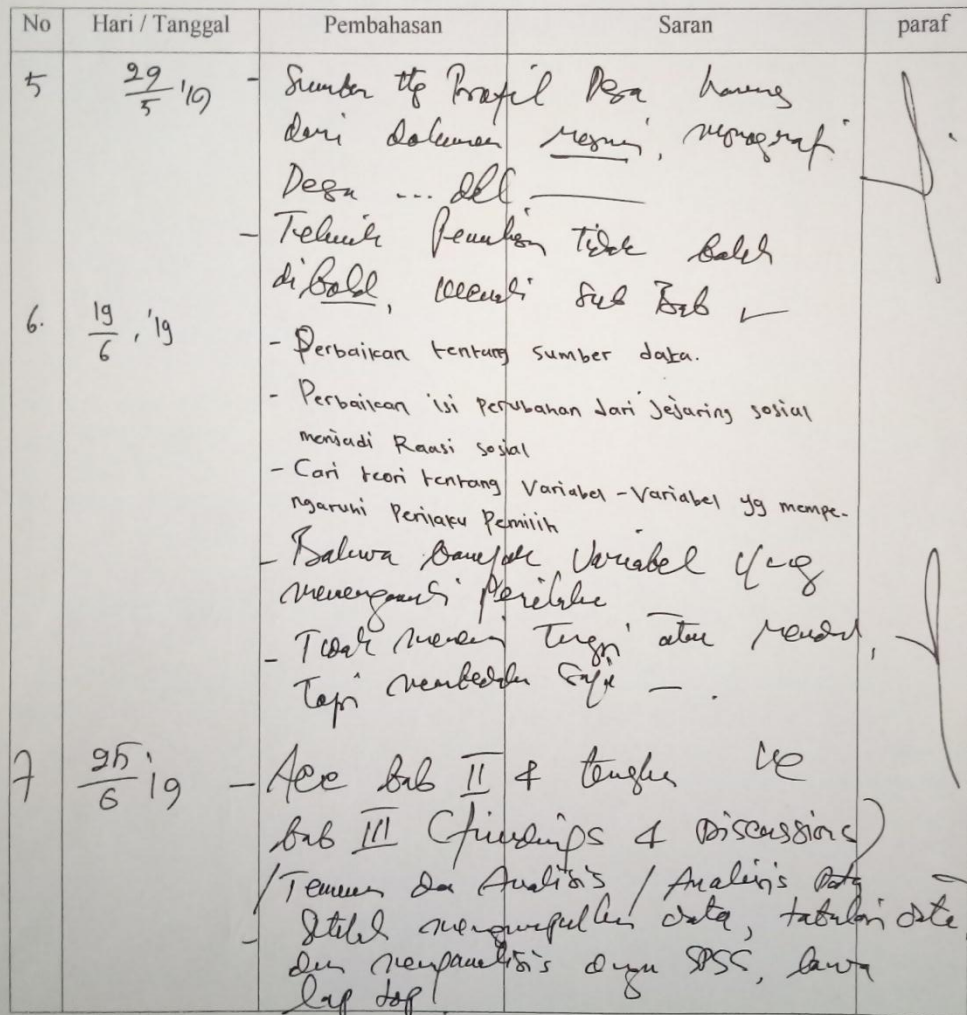 No Hari / Tanggal Pembahasan Saran paraf
5 29/5 '19 - Sumber ttg Profil Desa harus
dari dokumen resmi, monografi
Desa ... dll
- Teknik Penulisan tidak boleh
di bold, Sub Bab
6. 19/6, '19
- Perbaikan tentang sumber data.
- Perbaikan isi perubahan dari Jejaring sosial
menjadi Raasi sosial
- Cari teori tentang Variabel-Variabel yg mempe-
ngaruhi Perilaku Pemilih
- Bahwa banyak Variabel yang
mempengaruhi Perilaku
- Tidak Tinggi atau rendah,
Tapi membedakan saja - .
7 25/6 '19 - Acc bab II & ke
bab III (findings & Discussions)
/ Temuan dan Analisis / Analisis Data
- Setelah mengumpulkan data, tabulasi data,
dan menganalisis dengan SPSS, bawa
lap top